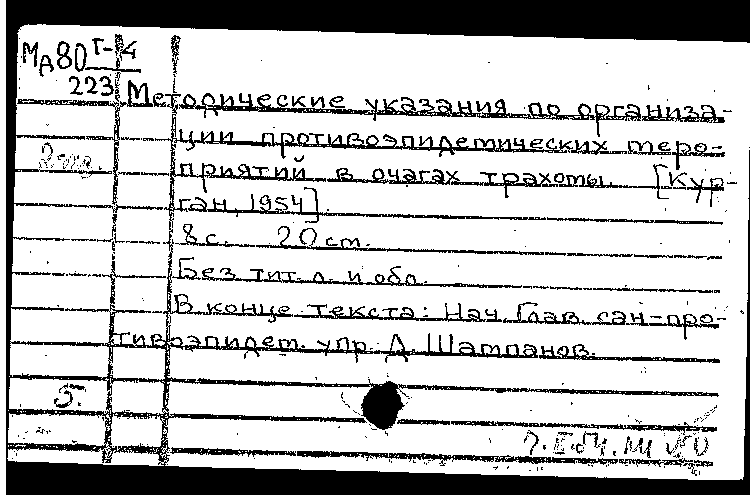 МА80 Г-4
223
Методические указания по организа-
ции противоэпидемических меро-
приятий в очагах трахомы. [Кур-
ган, 1954].
8 с. 20 см.
Без тит. л. и обл.
В конце текста: Нач. Глав. сан-про-
тивоэпидем. упр. Д. Шампанов.
5.